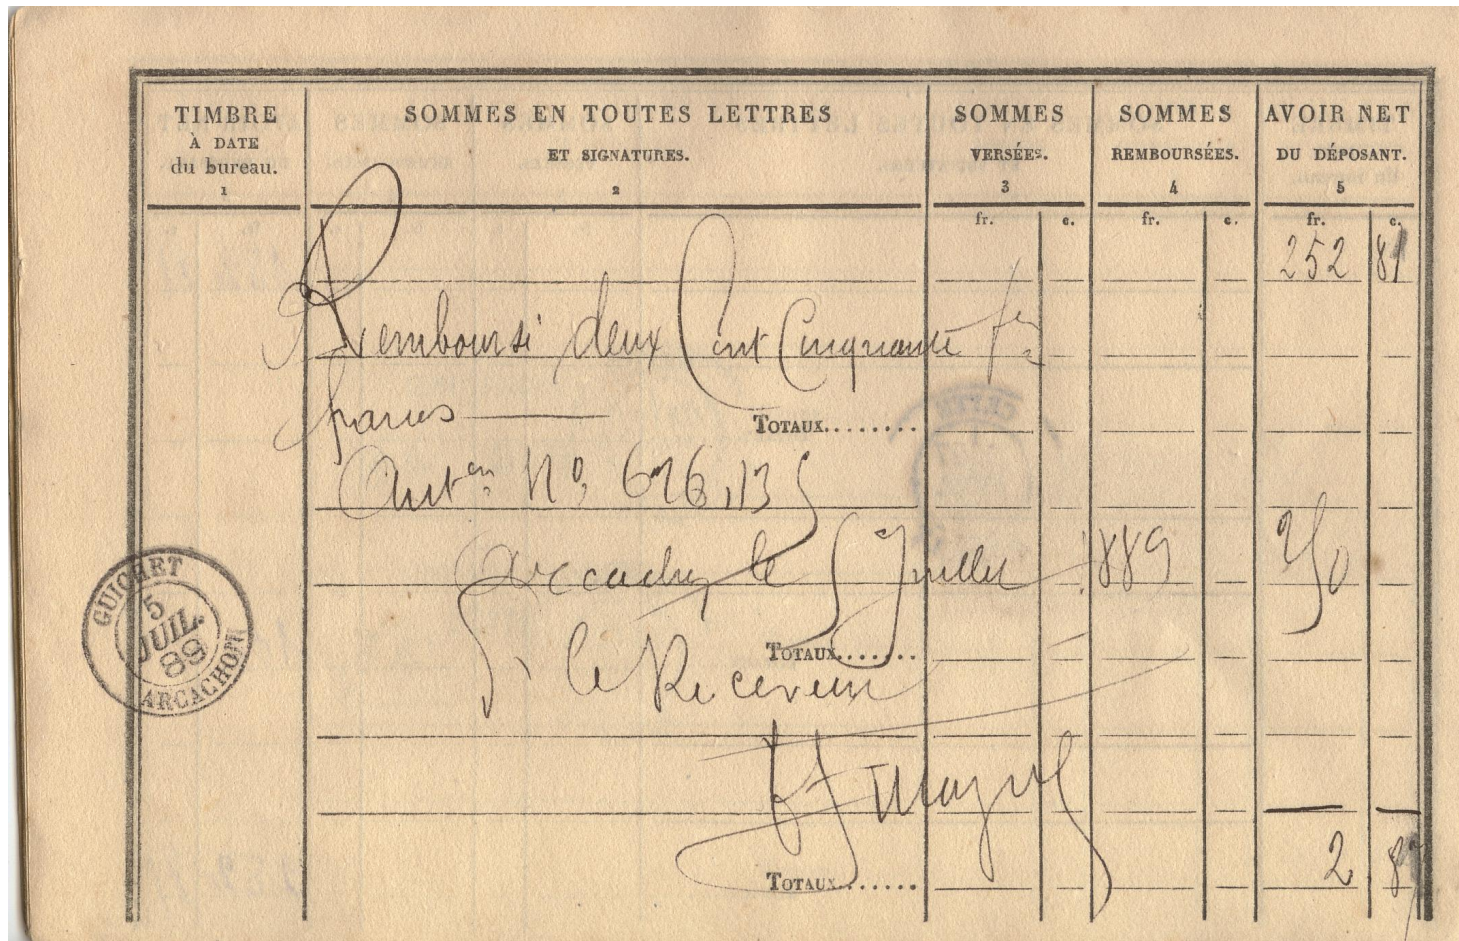 TIMBRE
À DATE
du bureau.
1
SOMMES EN TOUTES LETTRES
ET SIGNATURES.
2
SOMMES
VERSÉES.
3
SOMMES
REMBOURSÉES.
4
AVOIR NET
DU DÉPOSANT.
5
fr. c. fr. c. fr. c.
252 81
Remboursé deux Cent Cinquante
francs
TOTAUX........
Auton No 616,13
Arcachon le 5 Juillet 1889 250
GUICHET
5
JUIL.
89
ARCACHON
TOTAUX........
le Receveur
2 81
TOTAUX........